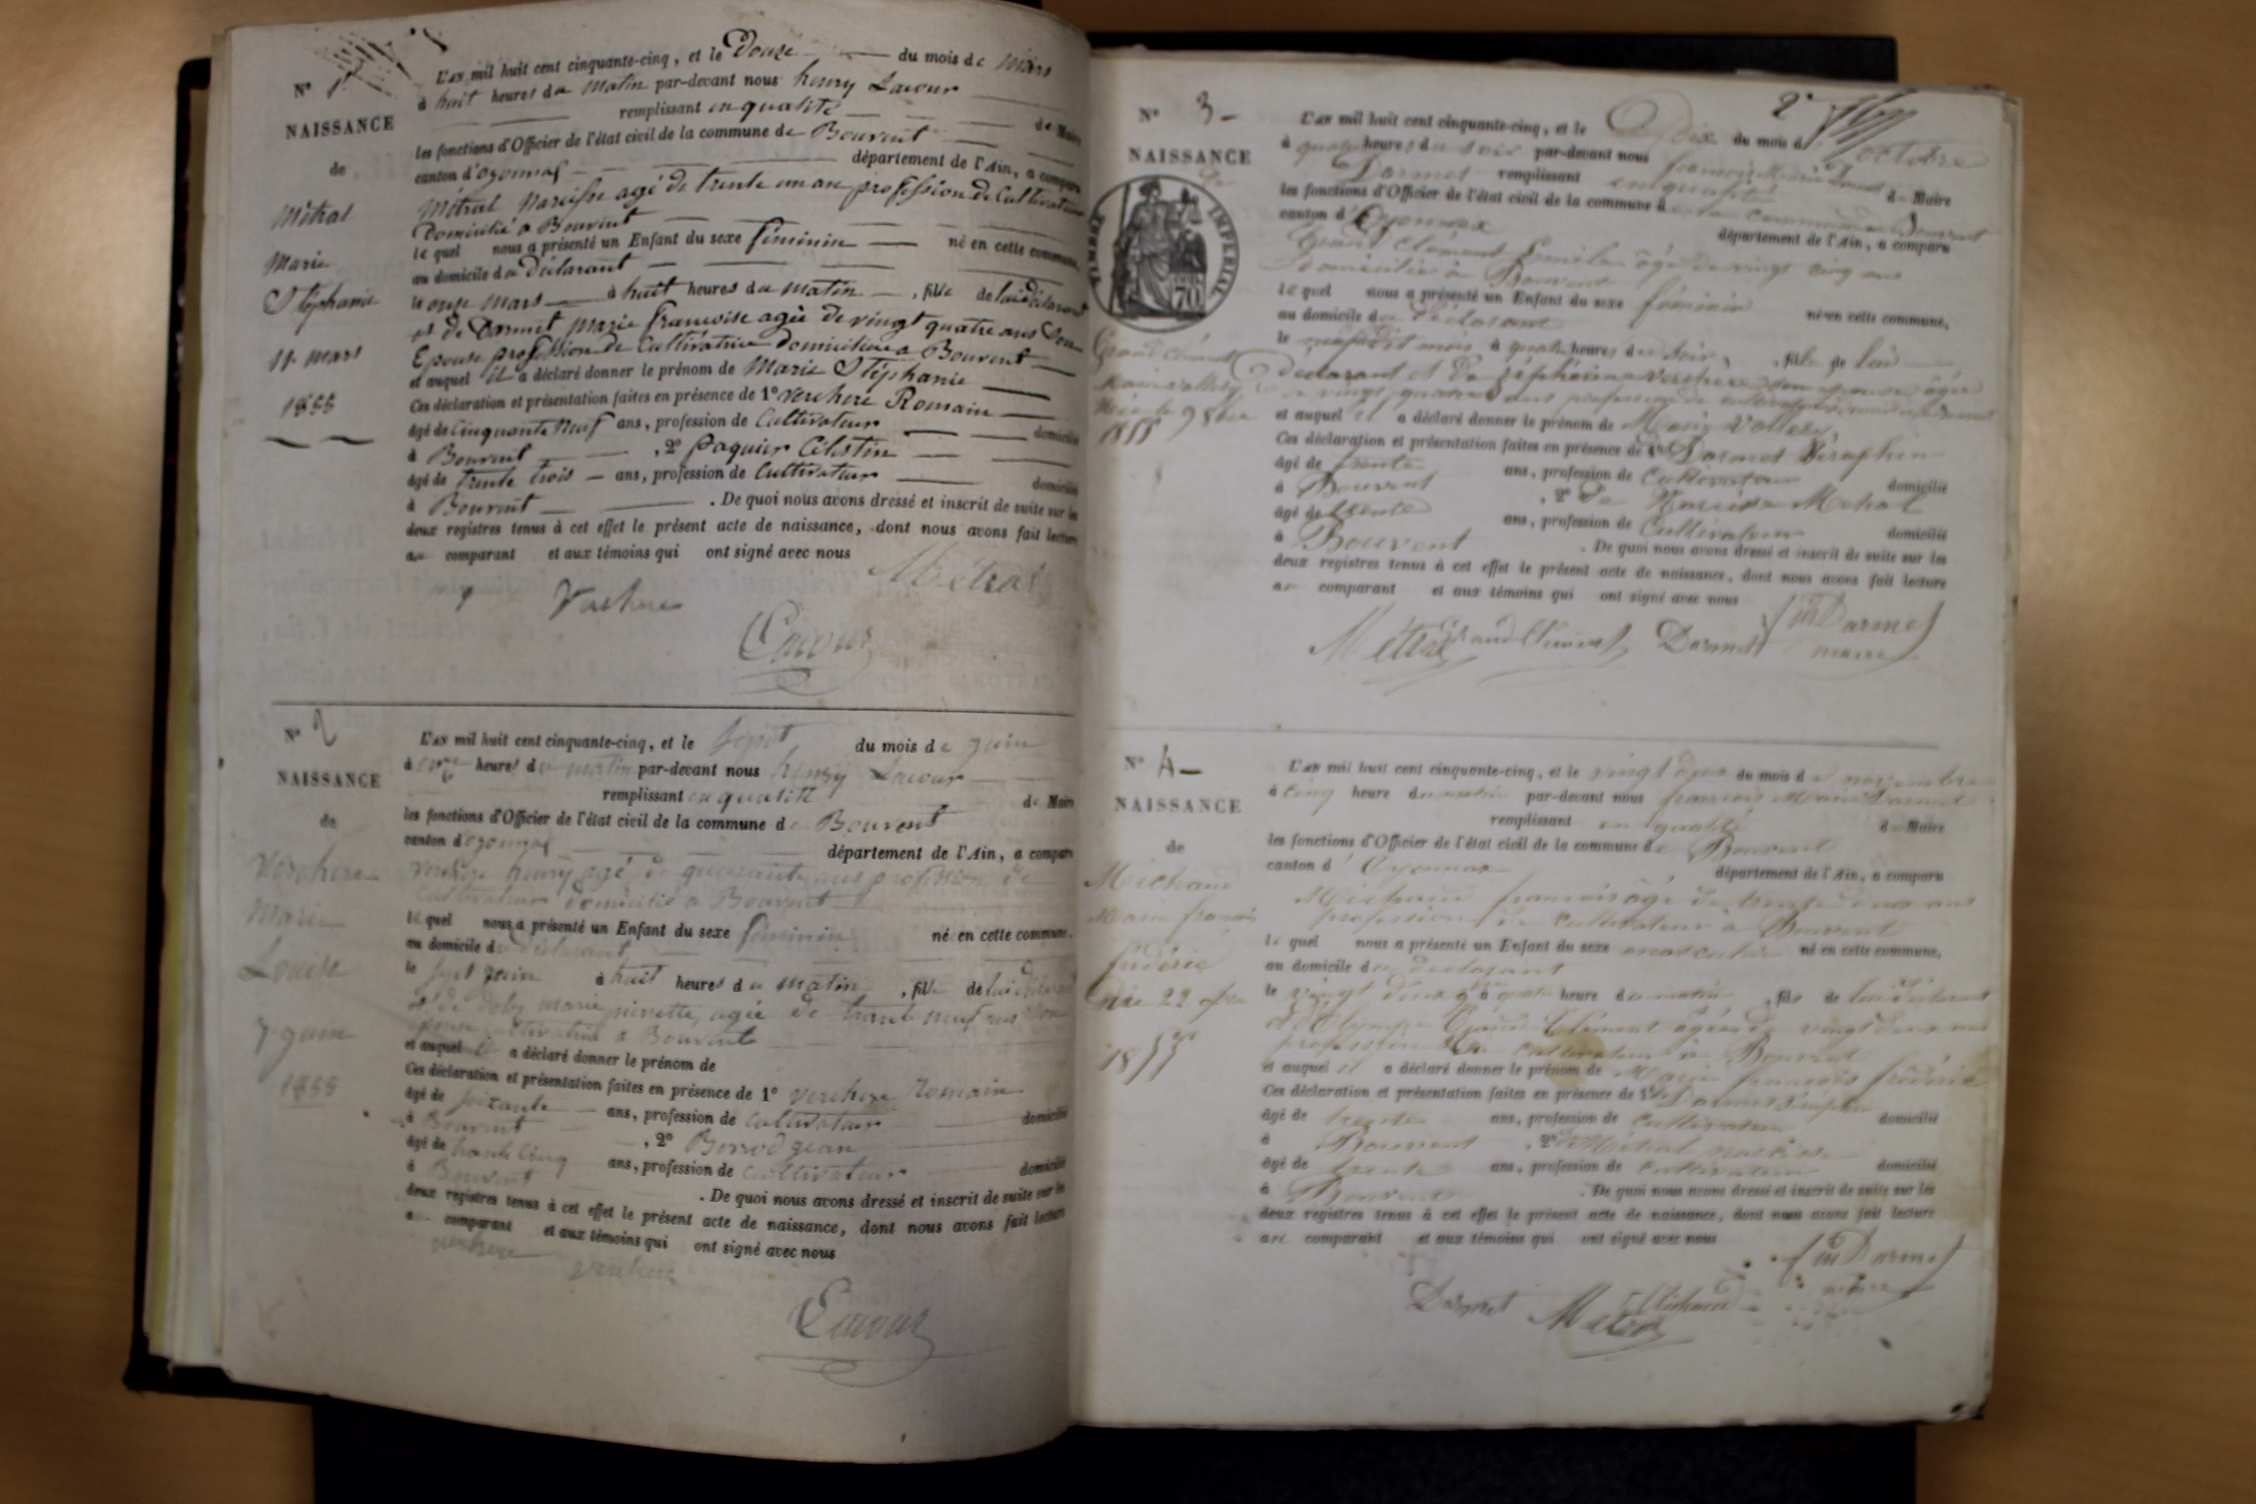 N° 1
NAISSANCE
de
Métral
Marie
Stéphanie
11 mars
1855
L'an mil huit cent cinquante-cinq, et le Douze du mois de mars
à huit heures du matin par-devant nous henry Lacour
remplissant en qualité de Maire
les fonctions d'Officier de l'état civil de la commune de Bouvent
canton d'oyonnax département de l'Ain, a comparu
Métral Narcisse agé de trente un an profession de Cultivateur
Domicilié a Bouvent
le quel nous a présenté un Enfant du sexe féminin né en cette commune,
au domicile du déclarant
le onze mars à huit heures du matin, fille de lui déclarant
et de Dormet Marie françoise agèe de vingt quatre ans Son
Epouse profession de Cultivatrice domiciliée a Bouvent
et auquel il a déclaré donner le prénom de Marie Stéphanie
Ces déclaration et présentation faites en présence de 1° Verchere Romain
âgé de cinquante Neuf ans, profession de Cultivateur domicilié
à Bouvent, 2° Paquier Célestin
âgé de trente trois ans, profession de Cultivateur domicilié
à Bouvent. De quoi nous avons dressé et inscrit de suite sur les
deux registres tenus à cet effet le présent acte de naissance, dont nous avons fait lecture
au comparant et aux témoins qui ont signé avec nous
Métral
Verchere
Lacour
N° 2
NAISSANCE
de
Verchere
Marie
Louise
7 juin
1855
L'an mil huit cent cinquante-cinq, et le sept du mois de juin
à onze heures du matin par-devant nous henry Lacour
remplissant en qualité de Maire
les fonctions d'Officier de l'état civil de la commune de Bouvent
canton d'oyonnax département de l'Ain, a comparu
Verchere henry agé de quarante ans profession de
Cultivateur domicilié a Bouvent
le quel nous a présenté un Enfant du sexe féminin né en cette commune,
au domicile du déclarant
le sept juin à huit heures du matin, fille de lui déclarant
et de marie pierrette, agée de trente neuf ans Son
épouse cultivatrice a Bouvent
et auquel il a déclaré donner le prénom de
Ces déclaration et présentation faites en présence de 1° Verchere Romain
âgé de soixante ans, profession de Cultivateur domicilié
à Bouvent, 2° Borrod jean
âgé de trente cinq ans, profession de Cultivateur domicilié
à Bouvent. De quoi nous avons dressé et inscrit de suite sur les
deux registres tenus à cet effet le présent acte de naissance, dont nous avons fait lecture
au comparant et aux témoins qui ont signé avec nous
verchere
verchere
Lacour
2°
N° 3
NAISSANCE
de
TIMBRE IMPERIAL
70
Grand Clément
Marie
Née le 9 8bre
1855
L'an mil huit cent cinquante-cinq, et le Dix du mois d'octobre
à quatre heures du soir par-devant nous françois Marie
Dormet remplissant en qualité de Maire
les fonctions d'Officier de l'état civil de la commune de Bouvent
canton d'Oyonnax département de l'Ain, a comparu
Grand Clément âgé de vingt cinq ans
domicilié à Bouvent
le quel nous a présenté un Enfant du sexe féminin né en cette commune,
au domicile du déclarant
le neuf dit mois à quatre heures du soir, fille de lui
déclarant et de Verchère son épouse âgée
de vingt quatre ans profession de
et auquel il a déclaré donner le prénom de Marie
Ces déclaration et présentation faites en présence de 1° Dormet Séraphin
âgé de trente ans, profession de Cultivateur domicilié
à Bouvent, 2° Narcisse Métral
âgé de trente ans, profession de Cultivateur domicilié
à Bouvent. De quoi nous avons dressé et inscrit de suite sur les
deux registres tenus à cet effet le présent acte de naissance, dont nous avons fait lecture
au comparant et aux témoins qui ont signé avec nous
Métral Grand Clément Dormet Dormet
maire
N° 4
NAISSANCE
de
Michaud
Marie françois
frédéric
Née 22 9bre
1855
L'an mil huit cent cinquante-cinq, et le vingt deux du mois de novembre
à cinq heure du matin par-devant nous françois Marie Dormet
remplissant en qualité de Maire
les fonctions d'Officier de l'état civil de la commune de Bouvent
canton d'Oyonnax département de l'Ain, a comparu
Michaud françois âgé de trente deux ans
profession de Cultivateur à Bouvent
le quel nous a présenté un Enfant du sexe masculin né en cette commune,
au domicile du déclarant
le vingt deux à quatre heure du matin, fils de lui déclarant
et Olympe Grand Clément âgée de vingt deux ans
profession de cultivateur à Bouvent
et auquel il a déclaré donner le prénom de Marie françois frédéric
Ces déclaration et présentation faites en présence de 1° Dormet Séraphin
âgé de trente ans, profession de Cultivateur domicilié
à Bouvent, 2° Métral Narcisse
âgé de trente ans, profession de Cultivateur domicilié
à Bouvent. De quoi nous avons dressé et inscrit de suite sur les
deux registres tenus à cet effet le présent acte de naissance, dont nous avons fait lecture
au comparant et aux témoins qui ont signé avec nous
Dormet
maire
Dormet Métral Michaud